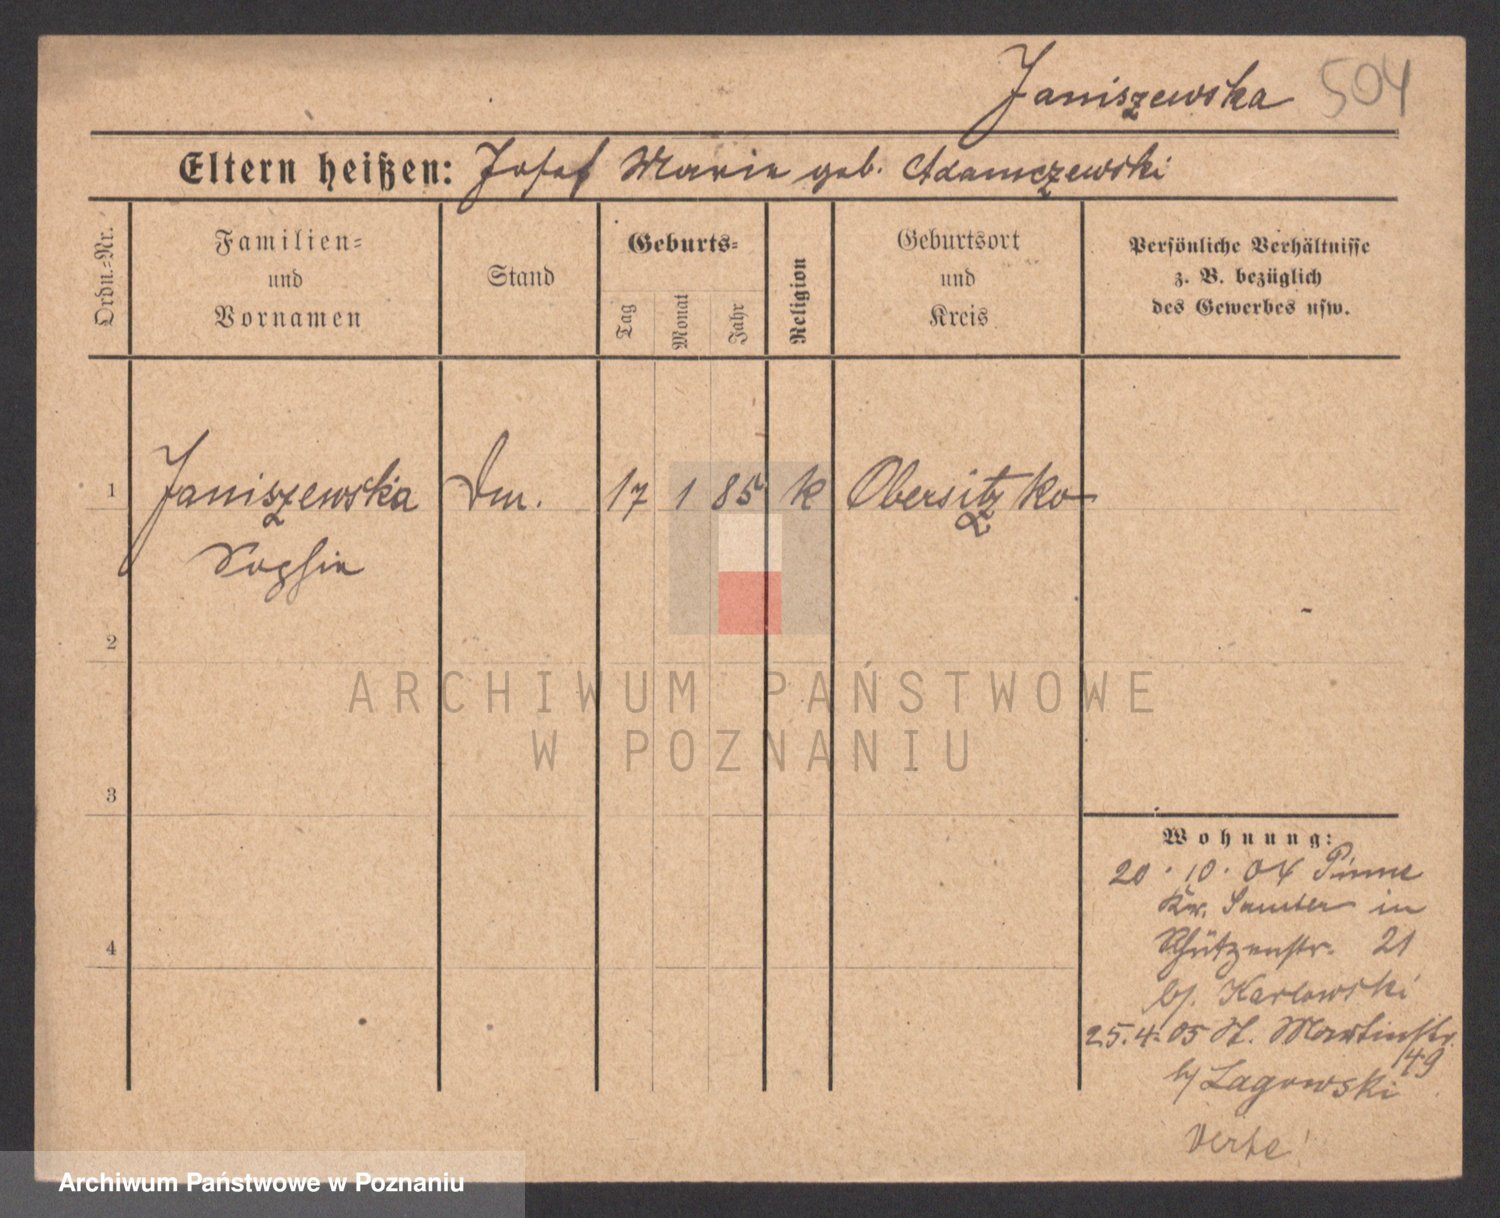 Janiszewska 504
Eltern heißen: Josef Marie geb. Adamczewski
Ordn.-Nr.
Familien-
und
Vornamen
Stand
Geburts-
Tag
Monat
Jahr
Religion
Geburtsort
und
Kreis
Persönliche Verhältnisse
z. B. bezüglich
des Gewerbes usw.
1 Janiszewska Dm. 17 1 85 k Obersitzko
Sophie
2
ARCHIWUM PAŃSTWOWE
W POZNANIU
3
Wohnung:
20.10.04 Pinne
Kr. Samter in
4
Schützenstr. 21
bj. Karlowski
25.4.05 St. Martinstr.
49
bj Lagowski
Verte!
Archiwum Państwowe w Poznaniu